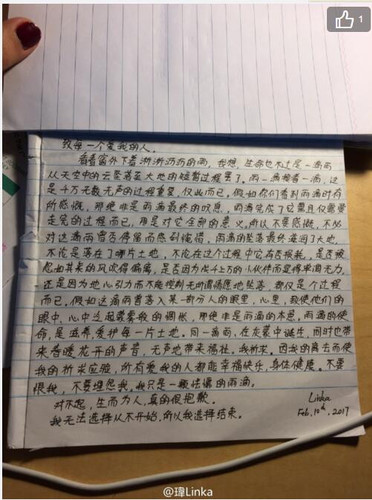 1
致每一个爱我的人。
看着窗外下着淅淅沥沥的雨，我想，这命也不过是一滴雨
从天空中的云坠落至大地的短暂过程罢了。雨一滴接着一滴，这
是千万无数无声的过程重叠，仅此而已，假如你们看到雨滴时有
所感慨，那绝非是雨滴最终的叹息，雨滴完成了它需且仅需要
走完的过程而已，那是对它全部的意义，所以不要感慨，不必
对这滴雨曾否停留而感到惋惜，雨滴的坠落最终滋润了大地，
不论是落在了哪片土地，不论在这个过程中它有否损耗，是否被
忽如其来的风吹得偏离，是否因为上方的小伙伴而变得单调无力，
还是因为地心引力而不能控制无所谓情愿地坠落，都仅是个过程
而已，假如这滴雨曾落入某一部分人的眼里，心里，致使他们的
眼中，心中泛起雾蒙蒙的惆怅，那绝非是雨滴的本意，雨滴的使
命，是滋养、爱护每一片土地。同一滴雨，在灰霾中诞生，同时也带
来春暖花开的声音，无声地带来福祉。我祈求，因我的离去而使
我的祈求应验，所有爱我的人都能幸福快乐，身体健康。不要
恨我，不要埋怨我，我只是一颗枯竭的雨滴。
对不起，生而为人，真的很抱歉。 Linka
我无法选择从不开始，所以我选择结束。 Feb, 10th, 2017
@瑋Linka